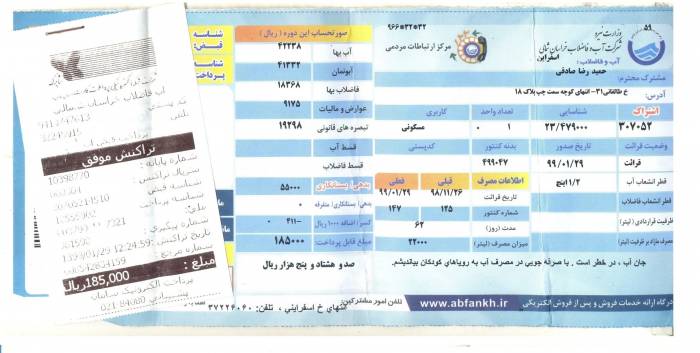 ۵۹
وزارت نیرو
شرکت آب و فاضلاب خراسان شمالی
اسفراین
آب و فاضلاب:
۹۶۶*۳۲*۳۲
مرکز ارتباطات مردمی
مشترک محترم: حمید رضا صادقی
آدرس: خ طالقانی۳۱- انتهای کوچه سمت چپ پلاک ۱۸
اشتراک شناسایی تعداد واحد کاربری
۳۰۷۰۵۲ ۲۳/۴۷۹۰۰۰ ۱ ۰ مسکونی
وضعیت قرائت تاریخ صدور بدنه کنتور کدپستی
قرائت ۹۹/۰۱/۲۹ ۴۹۹۰۴۷
قطر انشعاب آب ۱/۲ اینچ
قطر انشعاب فاضلاب
ظرفیت قراردادی (لیتر)
مصرف مازاد بر ظرفیت (لیتر)
اطلاعات مصرف قبلی فعلی
تاریخ قرائت ۹۸/۱۱/۲۶ ۹۹/۰۱/۲۹
شماره کنتور ۱۲۵ ۱۴۷
مدت (روز) ۶۲
میزان مصرف (لیتر) ۲۲۰۰۰
صورتحساب این دوره (ریال)
آب بها ۴۲۲۳۸
آبونمان ۴۱۳۳۲
فاضلاب بها ۱۸۳۶۸
عوارض و مالیات ۹۱۷۵
تبصره های قانونی ۱۹۲۹۸
قسط آب
قسط فاضلاب
بدهی/ بستانکاری ۵۵۰۰۰
بدهی/ بستانکاری/ متفرقه ۰
کسر/ اضافه ۱۰۰۰ ریال ۴۱۱-
مبلغ قابل پرداخت: ۱۸۵۰۰۰
صد و هشتاد و پنج هزار ریال
جان آب ، در خطر است . با صرفه جویی در مصرف آب به رویاهای کودکان بیاندیشیم.
درگاه ارائه خدمات فروش و پس از فروش الکترونیکی www.abfankh.ir
تلفن امور مشترکین:
انتهای خ اسفراینی ، تلفن: ۳۷۲۲۴۰۶۰
شناسه قبض:
شناسه پرداخت
آب فاضلاب خراسان شمالی
تراکنش موفق
شماره پایانه:
10398770
شماره مرجع:
مبلغ: 185,000ریال
پرداخت الکترونیک سامان
پشتیبانی 84080-021